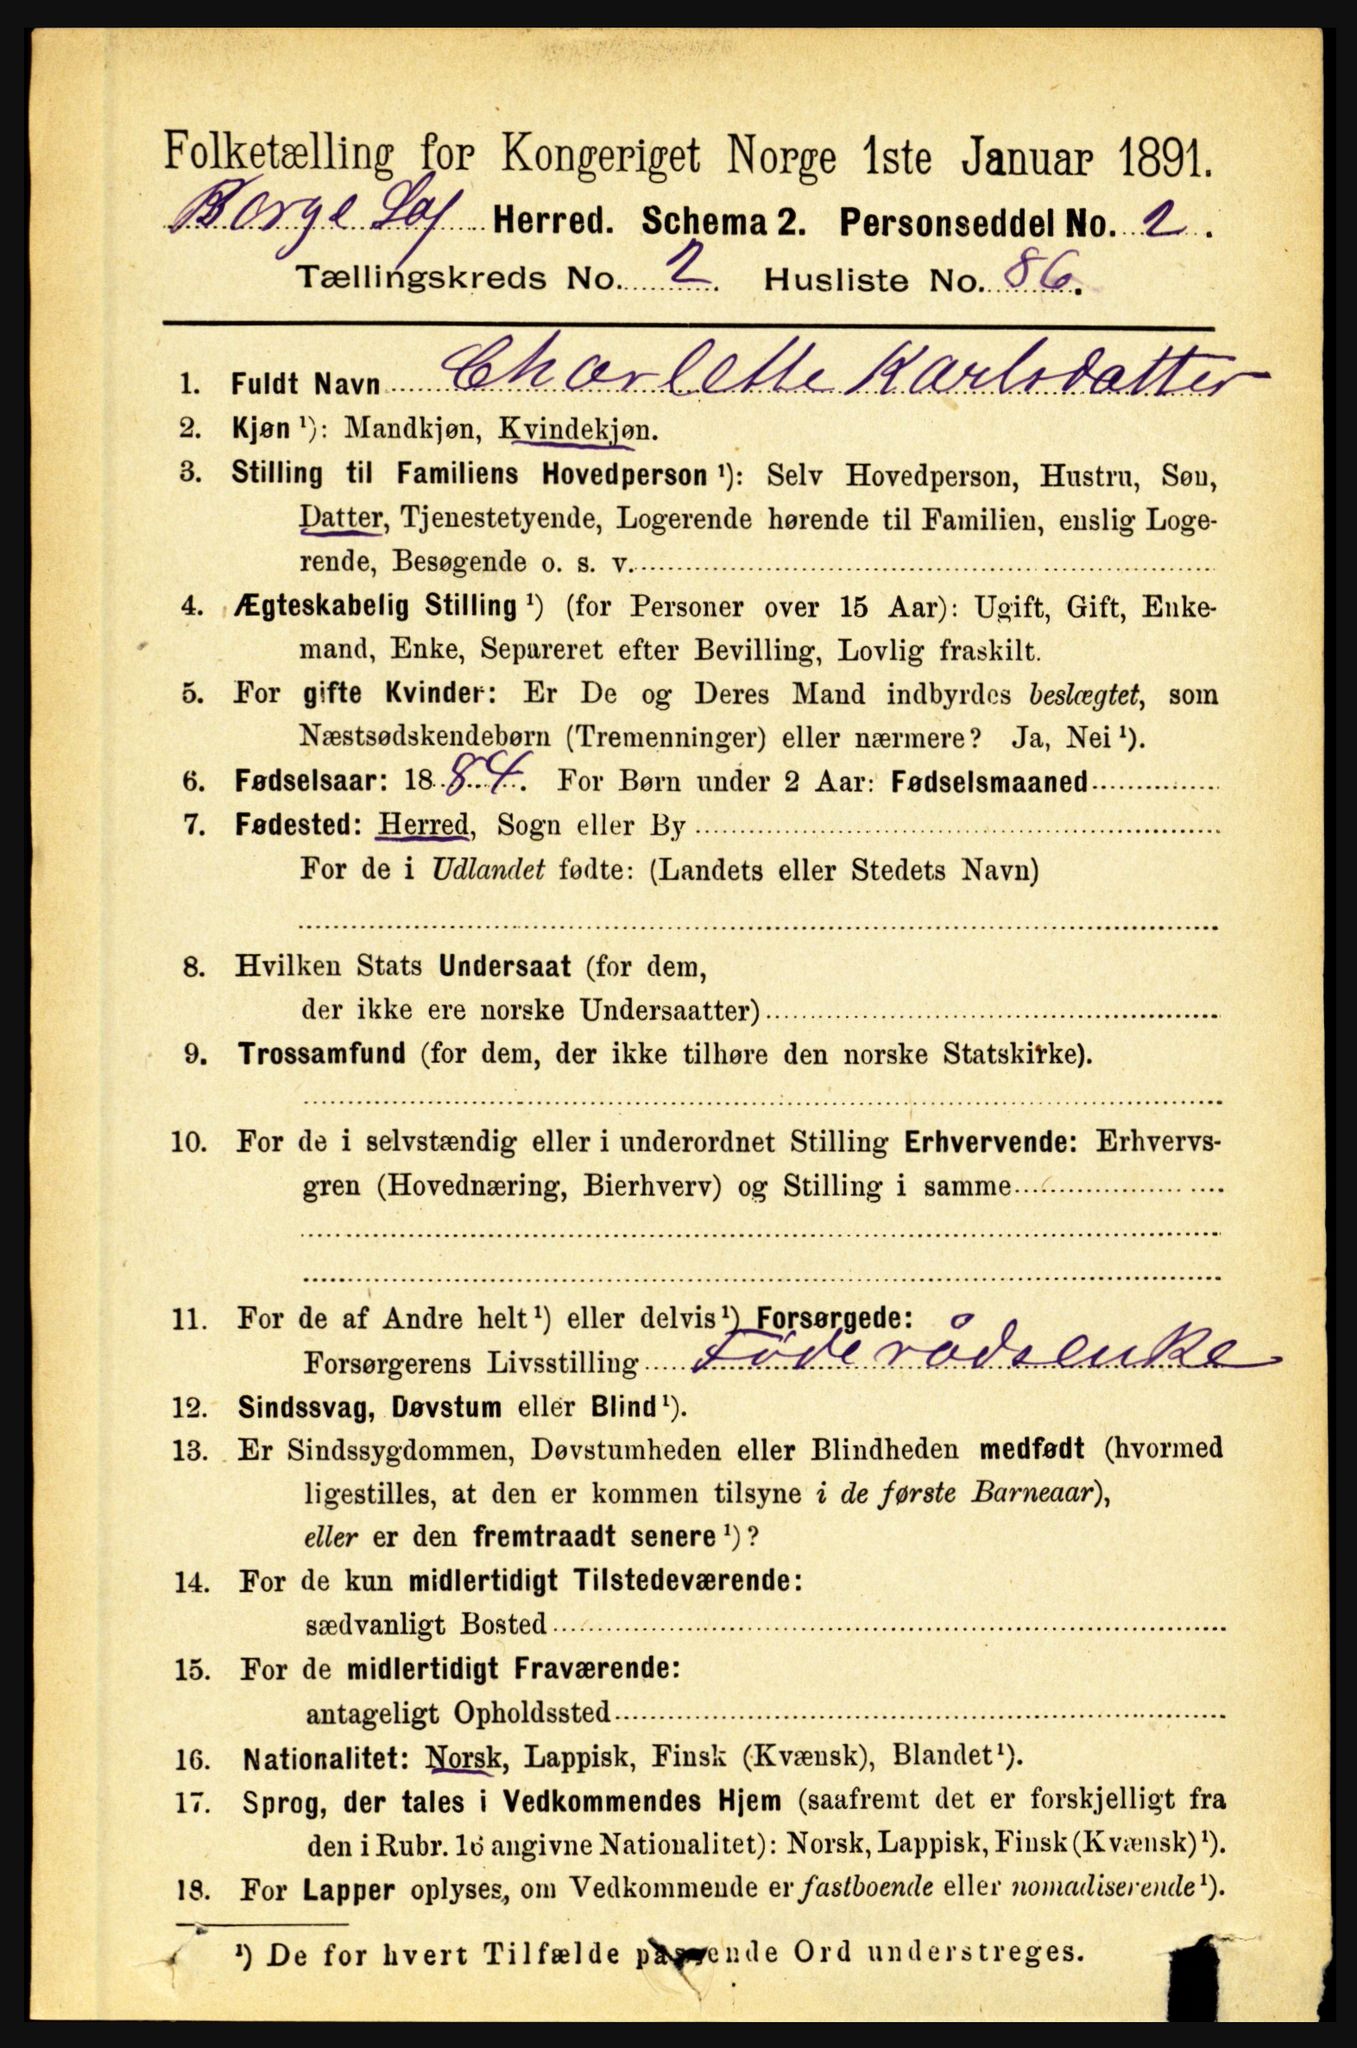 Folketælling for Kongeriget Norge 1ste Januar 1891.
Borge Lof Herred. Schema 2. Personseddel No. 2.
Tællingskreds No. 2. Husliste No. 86.
1. Fuldt Navn Charlette Karlsdatter
2. Kjøn ¹): Mandkjøn, Kvindekjøn.
3. Stilling til Familiens Hovedperson ¹): Selv Hovedperson, Hustru, Søn,
Datter, Tjenestetyende, Logerende hørende til Familien, enslig Loge-
rende, Besøgende o. s. v.
4. Ægteskabelig Stilling ¹) (for Personer over 15 Aar): Ugift, Gift, Enke-
mand, Enke, Separeret efter Bevilling, Lovlig fraskilt.
5. For gifte Kvinder: Er De og Deres Mand indbyrdes beslægtet, som
Næstsødskendebørn (Tremenninger) eller nærmere? Ja, Nei ¹).
6. Fødselsaar: 1884. For Børn under 2 Aar: Fødselsmaaned
7. Fødested: Herred, Sogn eller By
For de i Udlandet fødte: (Landets eller Stedets Navn)
8. Hvilken Stats Undersaat (for dem,
der ikke ere norske Undersaatter)
9. Trossamfund (for dem, der ikke tilhøre den norske Statskirke).
10. For de i selvstændig eller i underordnet Stilling Erhvervende: Erhvervs-
gren (Hovednæring, Bierhverv) og Stilling i samme
11. For de af Andre helt ¹) eller delvis ¹) Forsørgede:
Forsørgerens Livsstilling Føderådsenke
12. Sindssvag, Døvstum eller Blind ¹).
13. Er Sindssygdommen, Døvstumheden eller Blindheden medfødt (hvormed
ligestilles, at den er kommen tilsyne i de første Barneaar),
eller er den fremtraadt senere ¹)?
14. For de kun midlertidigt Tilstedeværende:
sædvanligt Bosted
15. For de midlertidigt Fraværende:
antageligt Opholdssted
16. Nationalitet: Norsk, Lappisk, Finsk (Kvænsk), Blandet ¹).
17. Sprog, der tales i Vedkommendes Hjem (saafremt det er forskjelligt fra
den i Rubr. 16 angivne Nationalitet): Norsk, Lappisk, Finsk (Kvænsk) ¹).
18. For Lapper oplyses, om Vedkommende er fastboende eller nomadiserende ¹).
¹) De for hvert Tilfælde passende Ord understreges.